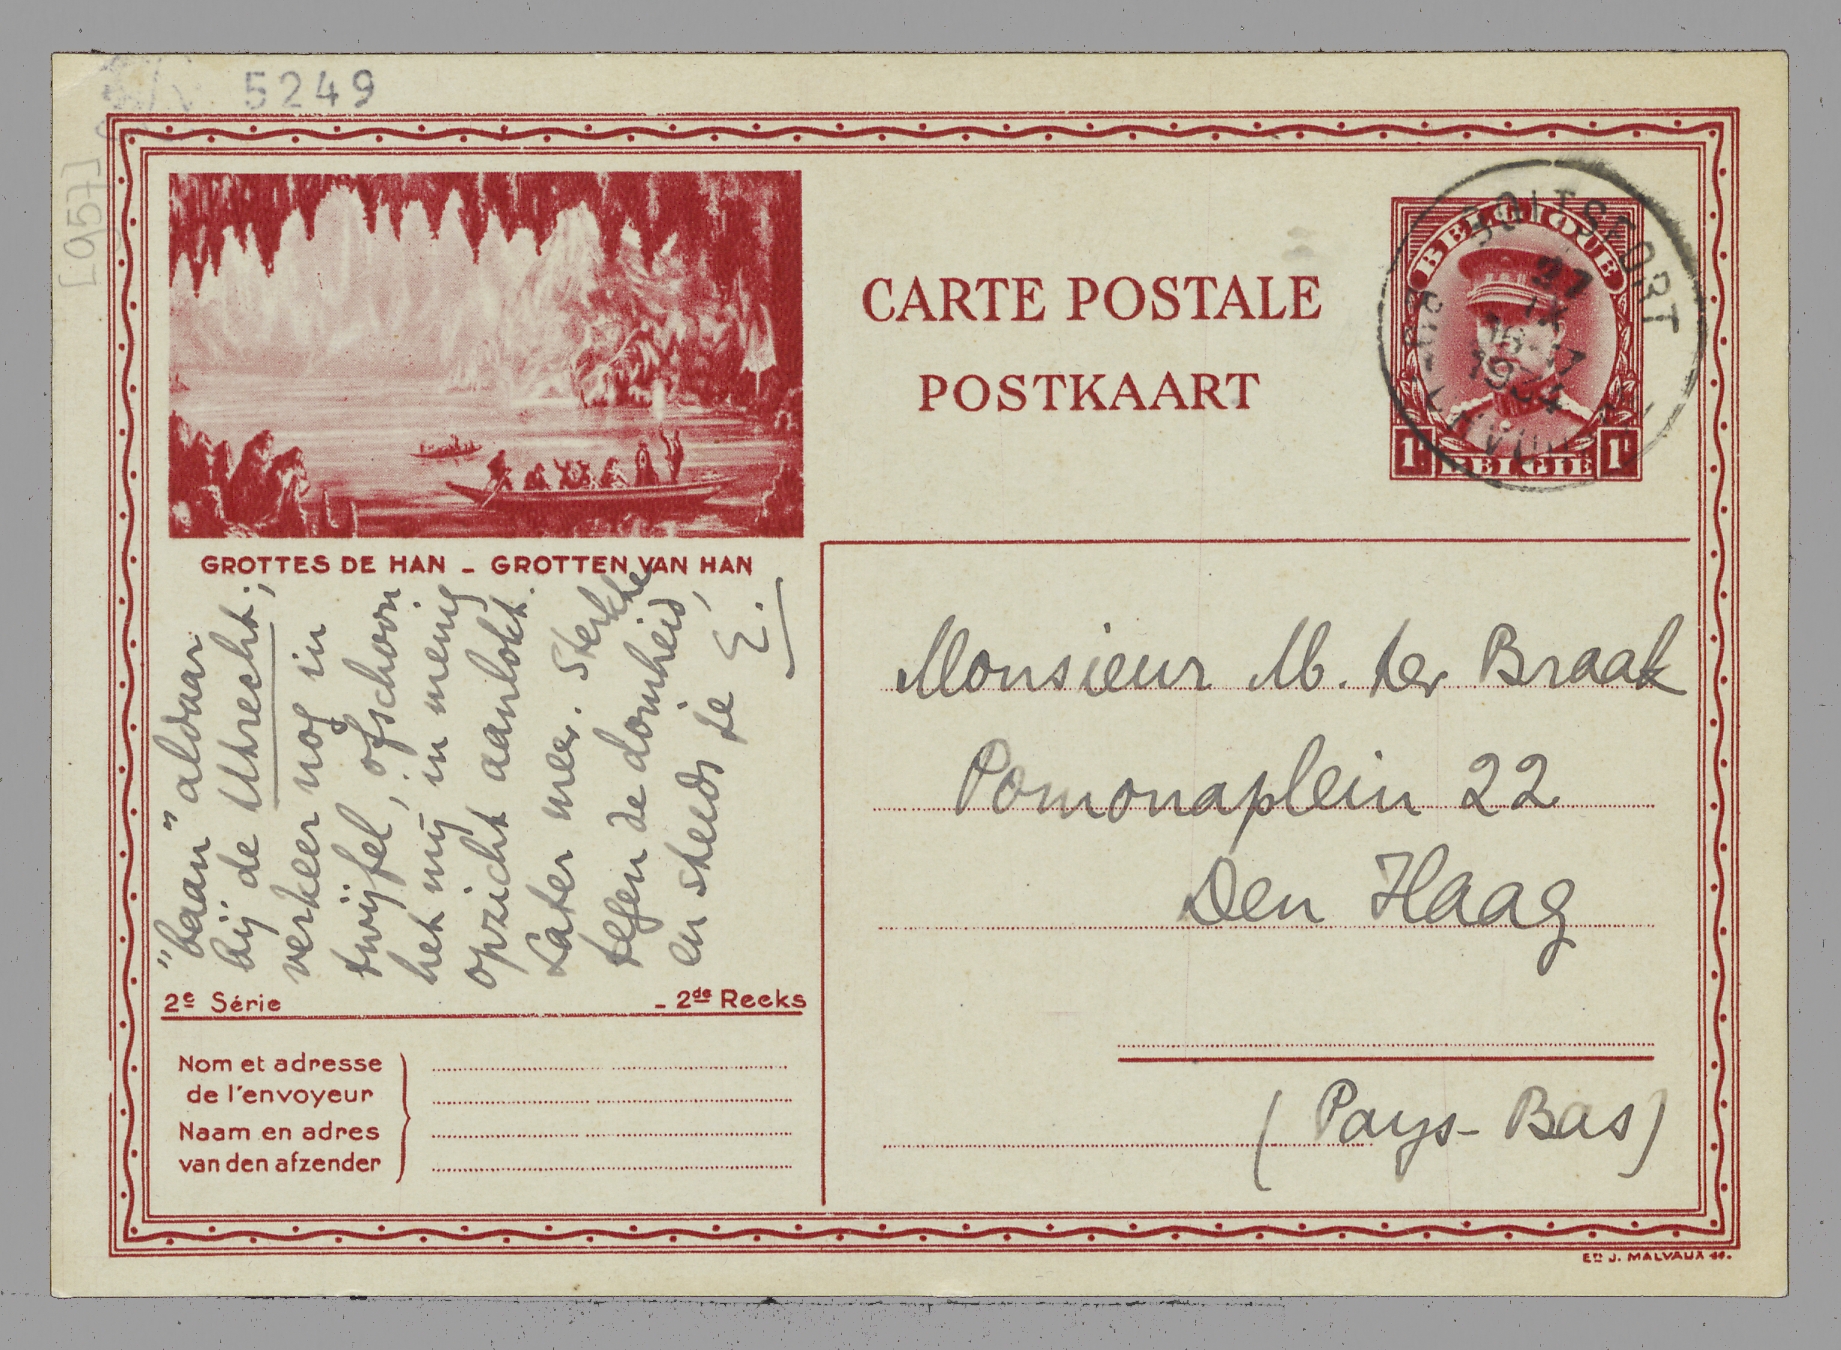 5249
[957]
CARTE POSTALE
POSTKAART
BELGIQUE
1F
BELGIË
1F
BOITSFORT
27
IX
16-17
1934
GROTTES DE HAN - GROTTEN VAN HAN
"baan" aldaar
bij de Utrecht;
verkeer nog in
twijfel, ofschoon
het mij in menig
opzicht aanlokt.
Later meer. Sterkte
tegen de domheid,
en steeds je
E.
2e Série - 2de Reeks
Nom et adresse
de l'envoyeur
Naam en adres
van den afzender
Monsieur M. ter Braak
Pomonaplein 22
Den Haag
(Pays-Bas)
Ets J. MALVAUX